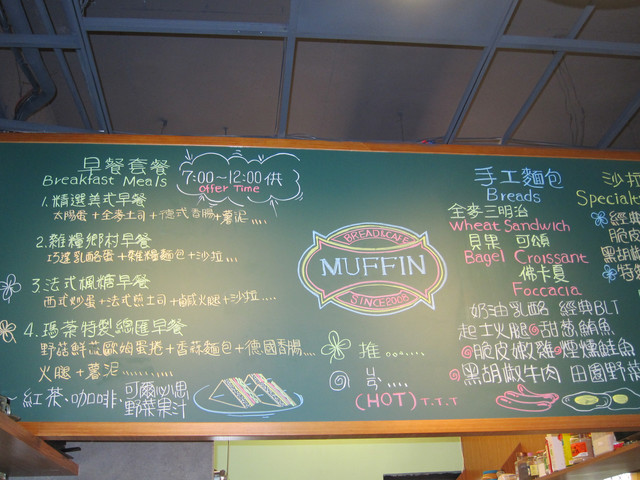 早餐套餐
Breakfast Meals
7:00~12:00 供
Offer Time
1.精選美式早餐
太陽蛋+全麥土司+德式香腸+薯泥....
2.雜糧鄉村早餐
巧達乳酪蛋+雜糧麵包+沙拉...
3.法式楓糖早餐
西式炒蛋+法式煎土司+鹹火腿+沙拉....
4.瑪芬特製總匯早餐
野菇鮮蔬歐姆蛋捲+香蒜麵包+德國香腸...
火腿+薯泥..........
紅茶、咖啡、可爾必思
野菜果汁
BREAD&CAFE
MUFFIN
SINCE2008
推......
(HOT) T.T.T
手工麵包
Breads
全麥三明治
Wheat Sandwich
貝果 可頌
Bagel Croissant
佛卡夏
Foccacia
奶油乳酪 經典BLT
起士火腿 甜蔥鮪魚
脆皮嫩雞 煙燻鮭魚
黑胡椒牛肉 田園野菜
沙拉
Special
脆皮
黑胡椒